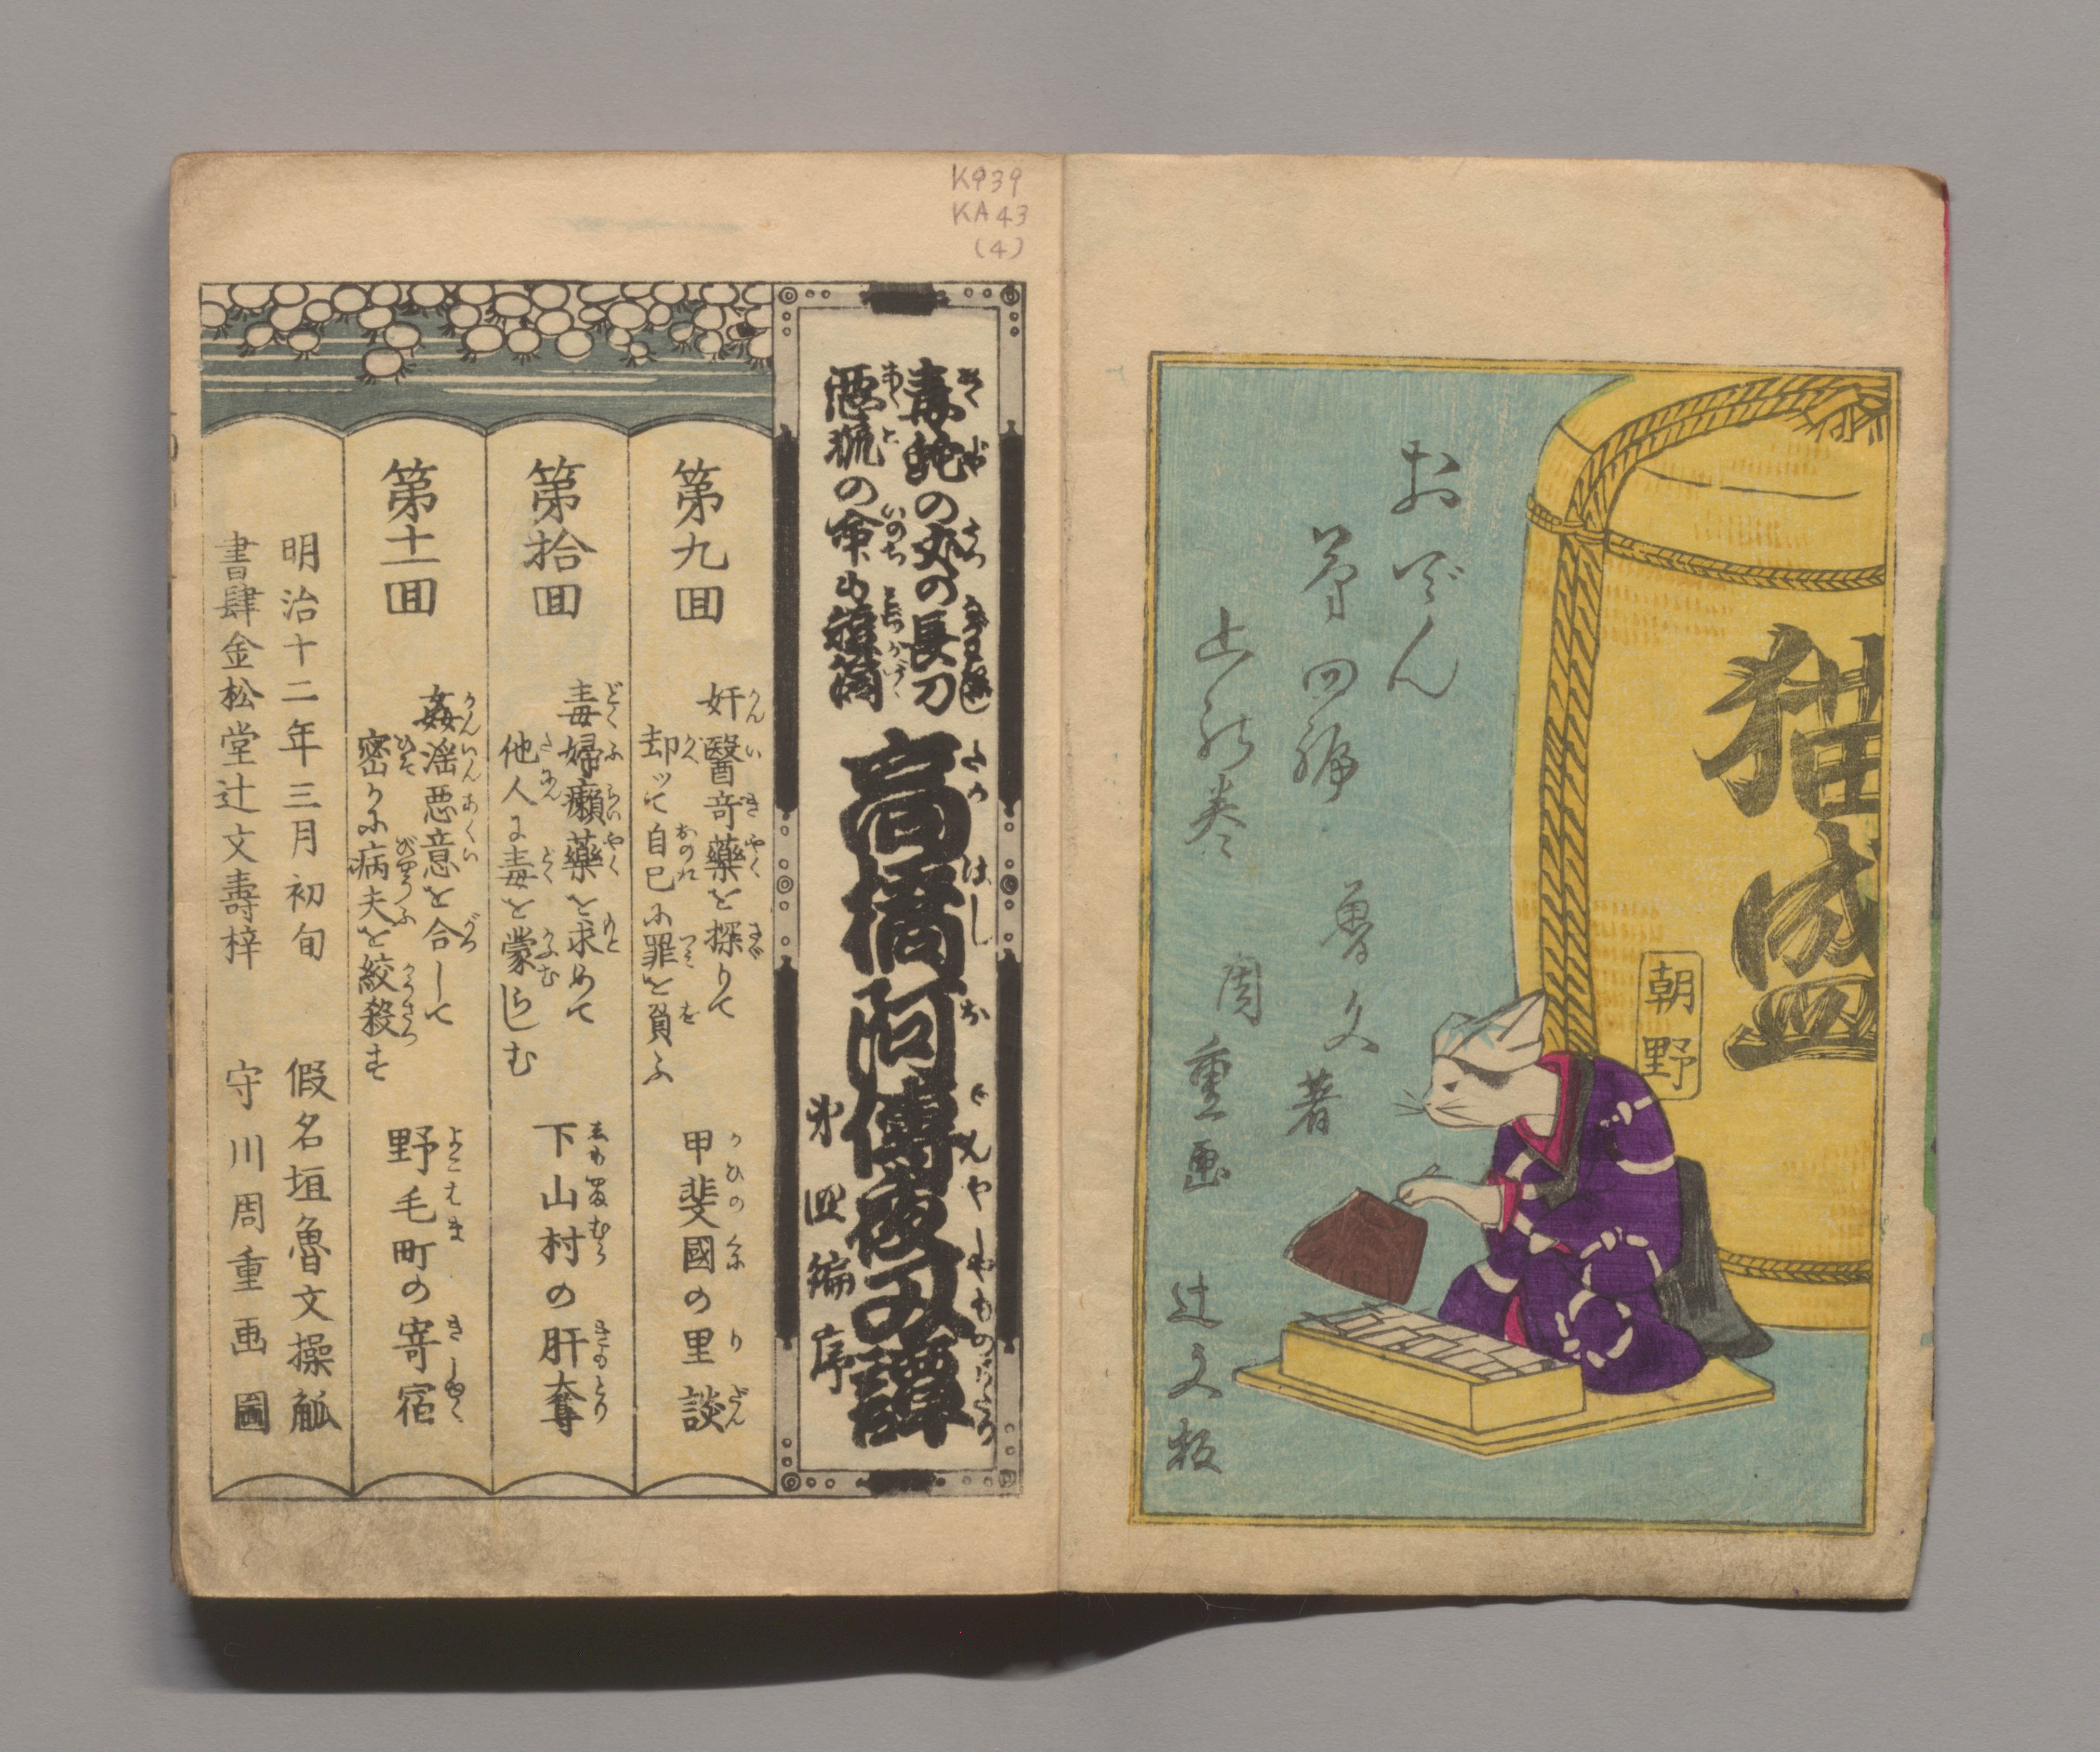 猫盛
朝野
おでん
第四編
上の巻
魯文著
周重画
辻文板
K939
KA43
(4)
毒蛇の
の長刀
悪
の命も
高橋阿傳夜刃譚
たかはしおでんやしやものがたり
第四編序
第九回
奸醫奇藥を探りて
却ツて自已に罪を負ふ
甲斐國の里談
第拾回
毒婦癩藥を求めて
他人に毒を蒙らしむ
下山村の肝奪
第十一回
姦淫惡意を合して
密かに病夫を絞殺す
野毛町の寄宿
明治十二年三月初旬
假名垣魯文操觚
書肆金松堂辻文壽梓
守川周重画圖